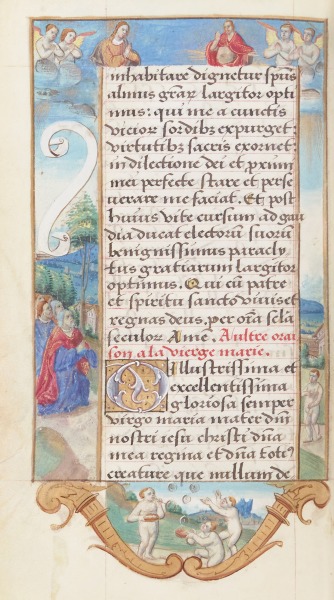 inhabitare dignetur spūs
almus graȝ largitor opti
mus: qui me a cunctis
vicioꝝ sordibꝫ expurget:
virtutibꝫ sacris exornet:
in dilectione dei et pximi
mei perfecte stare et perse
uerare me faciat. Et post
huius vite cursum ad gau
dia ducat electorū suorū
benignissimus paracly
tus gratiarum largitor
optimus. Qui cū patre
et spiritu sancto viuis et
regnas deus, per oīa sclā
seculoꝝ Amē. Aultre orai
son a la vierge marie.
O illustrissima et
excellentissima
gloriosa semper
virgo maria mater dnī
nostri iesu christi dnā
mea regina et dnā toti9
creature que nullum de